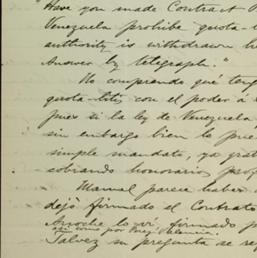 "Have you made Contract
Venezuela prohibe quota-
authority is withdrawn
Answer by telegraph."
No comprendo qué
quota-litis con el poder á
pues si la ley de Venezuela
sin embargo bien le
simple mandato, ya
cobrando honorarios
Manuel parece haber
dejó firmado el Contrato
Arroche lo vi firmado
así como por
Talvez su pregunta se